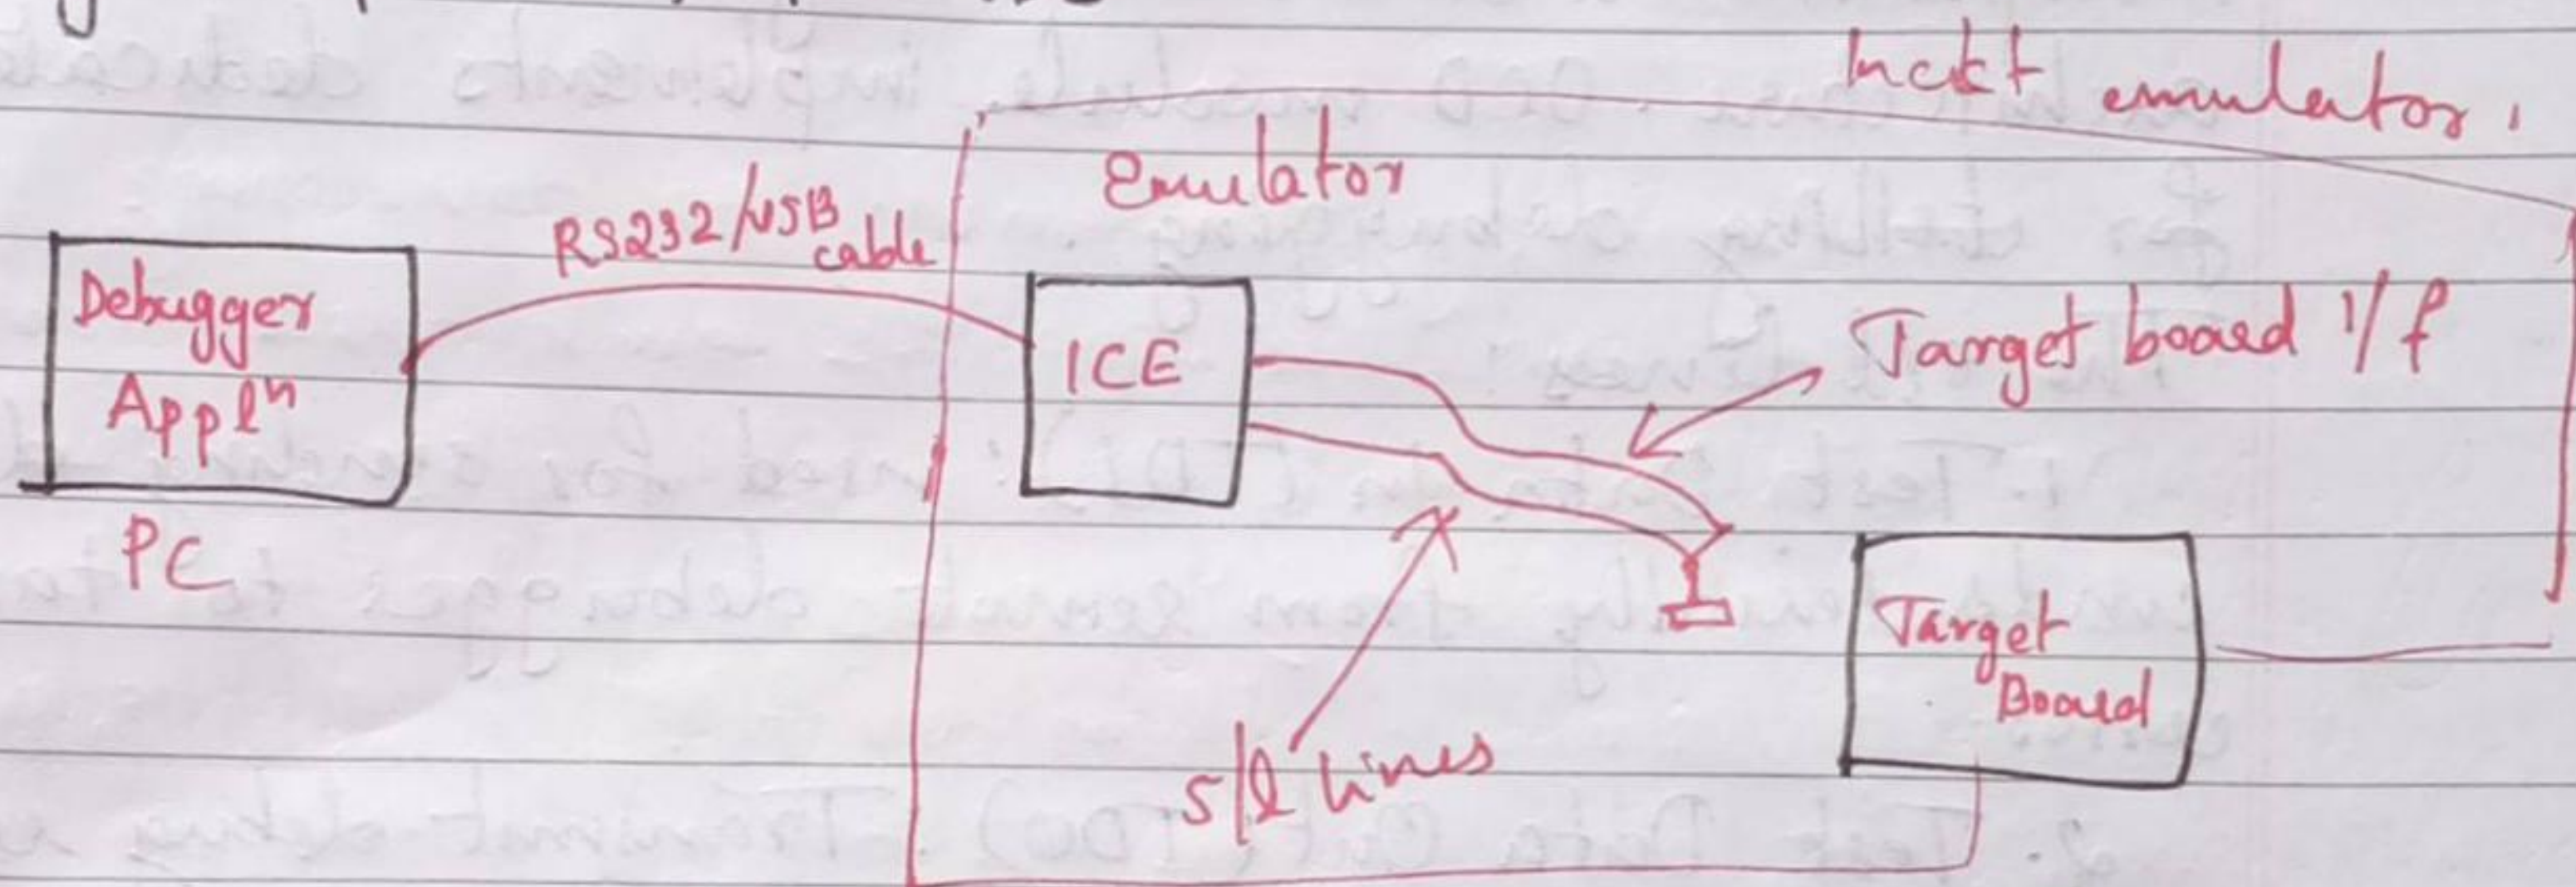 Inckt emulator.
Emulator
RS232/USB
cable
Debugger
Appl^n
ICE
Target board I/f
PC
Target
Board
s/l lines